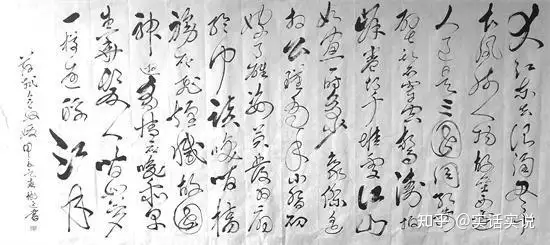 大江东去浪淘尽
人物故垒西
人道是三国周郎
赤壁乱石穿空惊涛拍
岸卷起千堆雪江山
如画一时多少豪杰
想公瑾当年小乔初
嫁了雄姿英发羽扇
纶巾谈笑间樯
橹灰飞烟灭故国
神游多情应笑我早
生华发人间如梦
一樽还酹江月
知乎 @实话实说